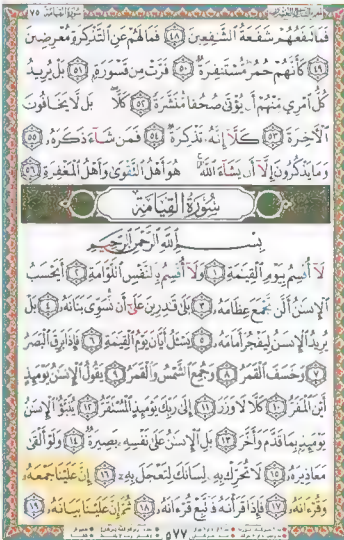 فَمَا تَنفَعُهُمْ شَفَٰعَةُ ٱلشَّٰفِعِينَ ٤٨ فَمَا لَهُمْ عَنِ ٱلتَّذْكِرَةِ مُعْرِضِينَ
٤٩ كَأَنَّهُمْ حُمُرٌ مُّسْتَنفِرَةٌ ٥٠ فَرَّتْ مِن قَسْوَرَةٍۭ ٥١ بَلْ يُرِيدُ
كُلُّ ٱمْرِئٍ مِّنْهُمْ أَن يُؤْتَىٰ صُحُفًا مُّنَشَّرَةً ٥٢ كَلَّا ۖ بَل لَّا يَخَافُونَ
ٱلْءَاخِرَةَ ٥٣ كَلَّآ إِنَّهُۥ تَذْكِرَةٌ ٥٤ فَمَن شَآءَ ذَكَرَهُۥ ٥٥
وَمَا يَذْكُرُونَ إِلَّآ أَن يَشَآءَ ٱللَّهُ ۚ هُوَ أَهْلُ ٱلتَّقْوَىٰ وَأَهْلُ ٱلْمَغْفِرَةِ ٥٦
سُورَةُ القِيَامَةِ
بِسْمِ ٱللَّهِ ٱلرَّحْمَٰنِ ٱلرَّحِيمِ
لَآ أُقْسِمُ بِيَوْمِ ٱلْقِيَٰمَةِ ١ وَلَآ أُقْسِمُ بِٱلنَّفْسِ ٱللَّوَّامَةِ ٢ أَيَحْسَبُ
ٱلْإِنسَٰنُ أَلَّن نَّجْمَعَ عِظَامَهُۥ ٣ بَلَىٰ قَٰدِرِينَ عَلَىٰٓ أَن نُّسَوِّىَ بَنَانَهُۥ ٤ بَلْ
يُرِيدُ ٱلْإِنسَٰنُ لِيَفْجُرَ أَمَامَهُۥ ٥ يَسْـَٔلُ أَيَّانَ يَوْمُ ٱلْقِيَٰمَةِ ٦ فَإِذَا بَرِقَ ٱلْبَصَرُ
٧ وَخَسَفَ ٱلْقَمَرُ ٨ وَجُمِعَ ٱلشَّمْسُ وَٱلْقَمَرُ ٩ يَقُولُ ٱلْإِنسَٰنُ يَوْمَئِذٍ
أَيْنَ ٱلْمَفَرُّ ١٠ كَلَّا لَا وَزَرَ ١١ إِلَىٰ رَبِّكَ يَوْمَئِذٍ ٱلْمُسْتَقَرُّ ١٢ يُنَبَّؤُا۟ ٱلْإِنسَٰنُ
يَوْمَئِذٍۭ بِمَا قَدَّمَ وَأَخَّرَ ١٣ بَلِ ٱلْإِنسَٰنُ عَلَىٰ نَفْسِهِۦ بَصِيرَةٌ ١٤ وَلَوْ أَلْقَىٰ
مَعَاذِيرَهُۥ ١٥ لَا تُحَرِّكْ بِهِۦ لِسَانَكَ لِتَعْجَلَ بِهِۦٓ ١٦ إِنَّ عَلَيْنَا جَمْعَهُۥ
وَقُرْءَانَهُۥ ١٧ فَإِذَا قَرَأْنَٰهُ فَٱتَّبِعْ قُرْءَانَهُۥ ١٨ ثُمَّ إِنَّ عَلَيْنَا بَيَانَهُۥ ١٩
٥٧٧